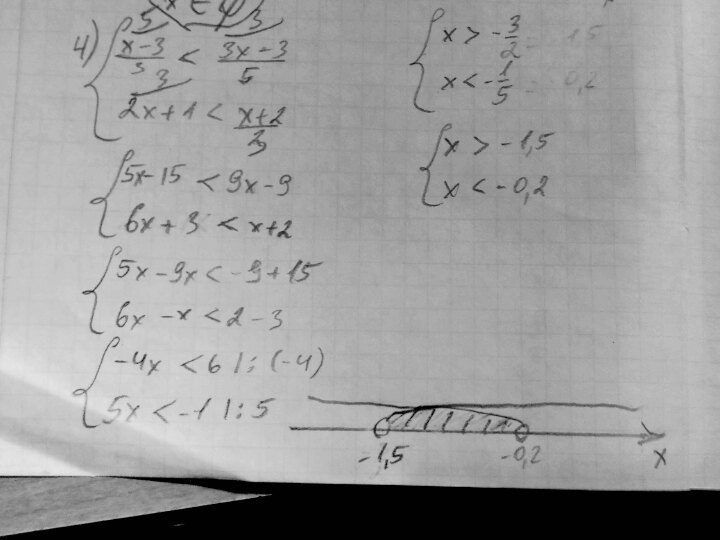 x ∈ φ
4) { (x-3)/3 < (3x-3)/5
2x+1 < (x+2)/3
{ 5x-15 < 9x-9
6x+3 < x+2
{ 5x-9x < -9+15
6x-x < 2-3
{ -4x < 6 |: (-4)
5x < -1 |: 5
{ x > -3/2 = 1,5
x < -1/5 = 0,2
{ x > -1,5
x < -0,2
-1,5 -0,2 x